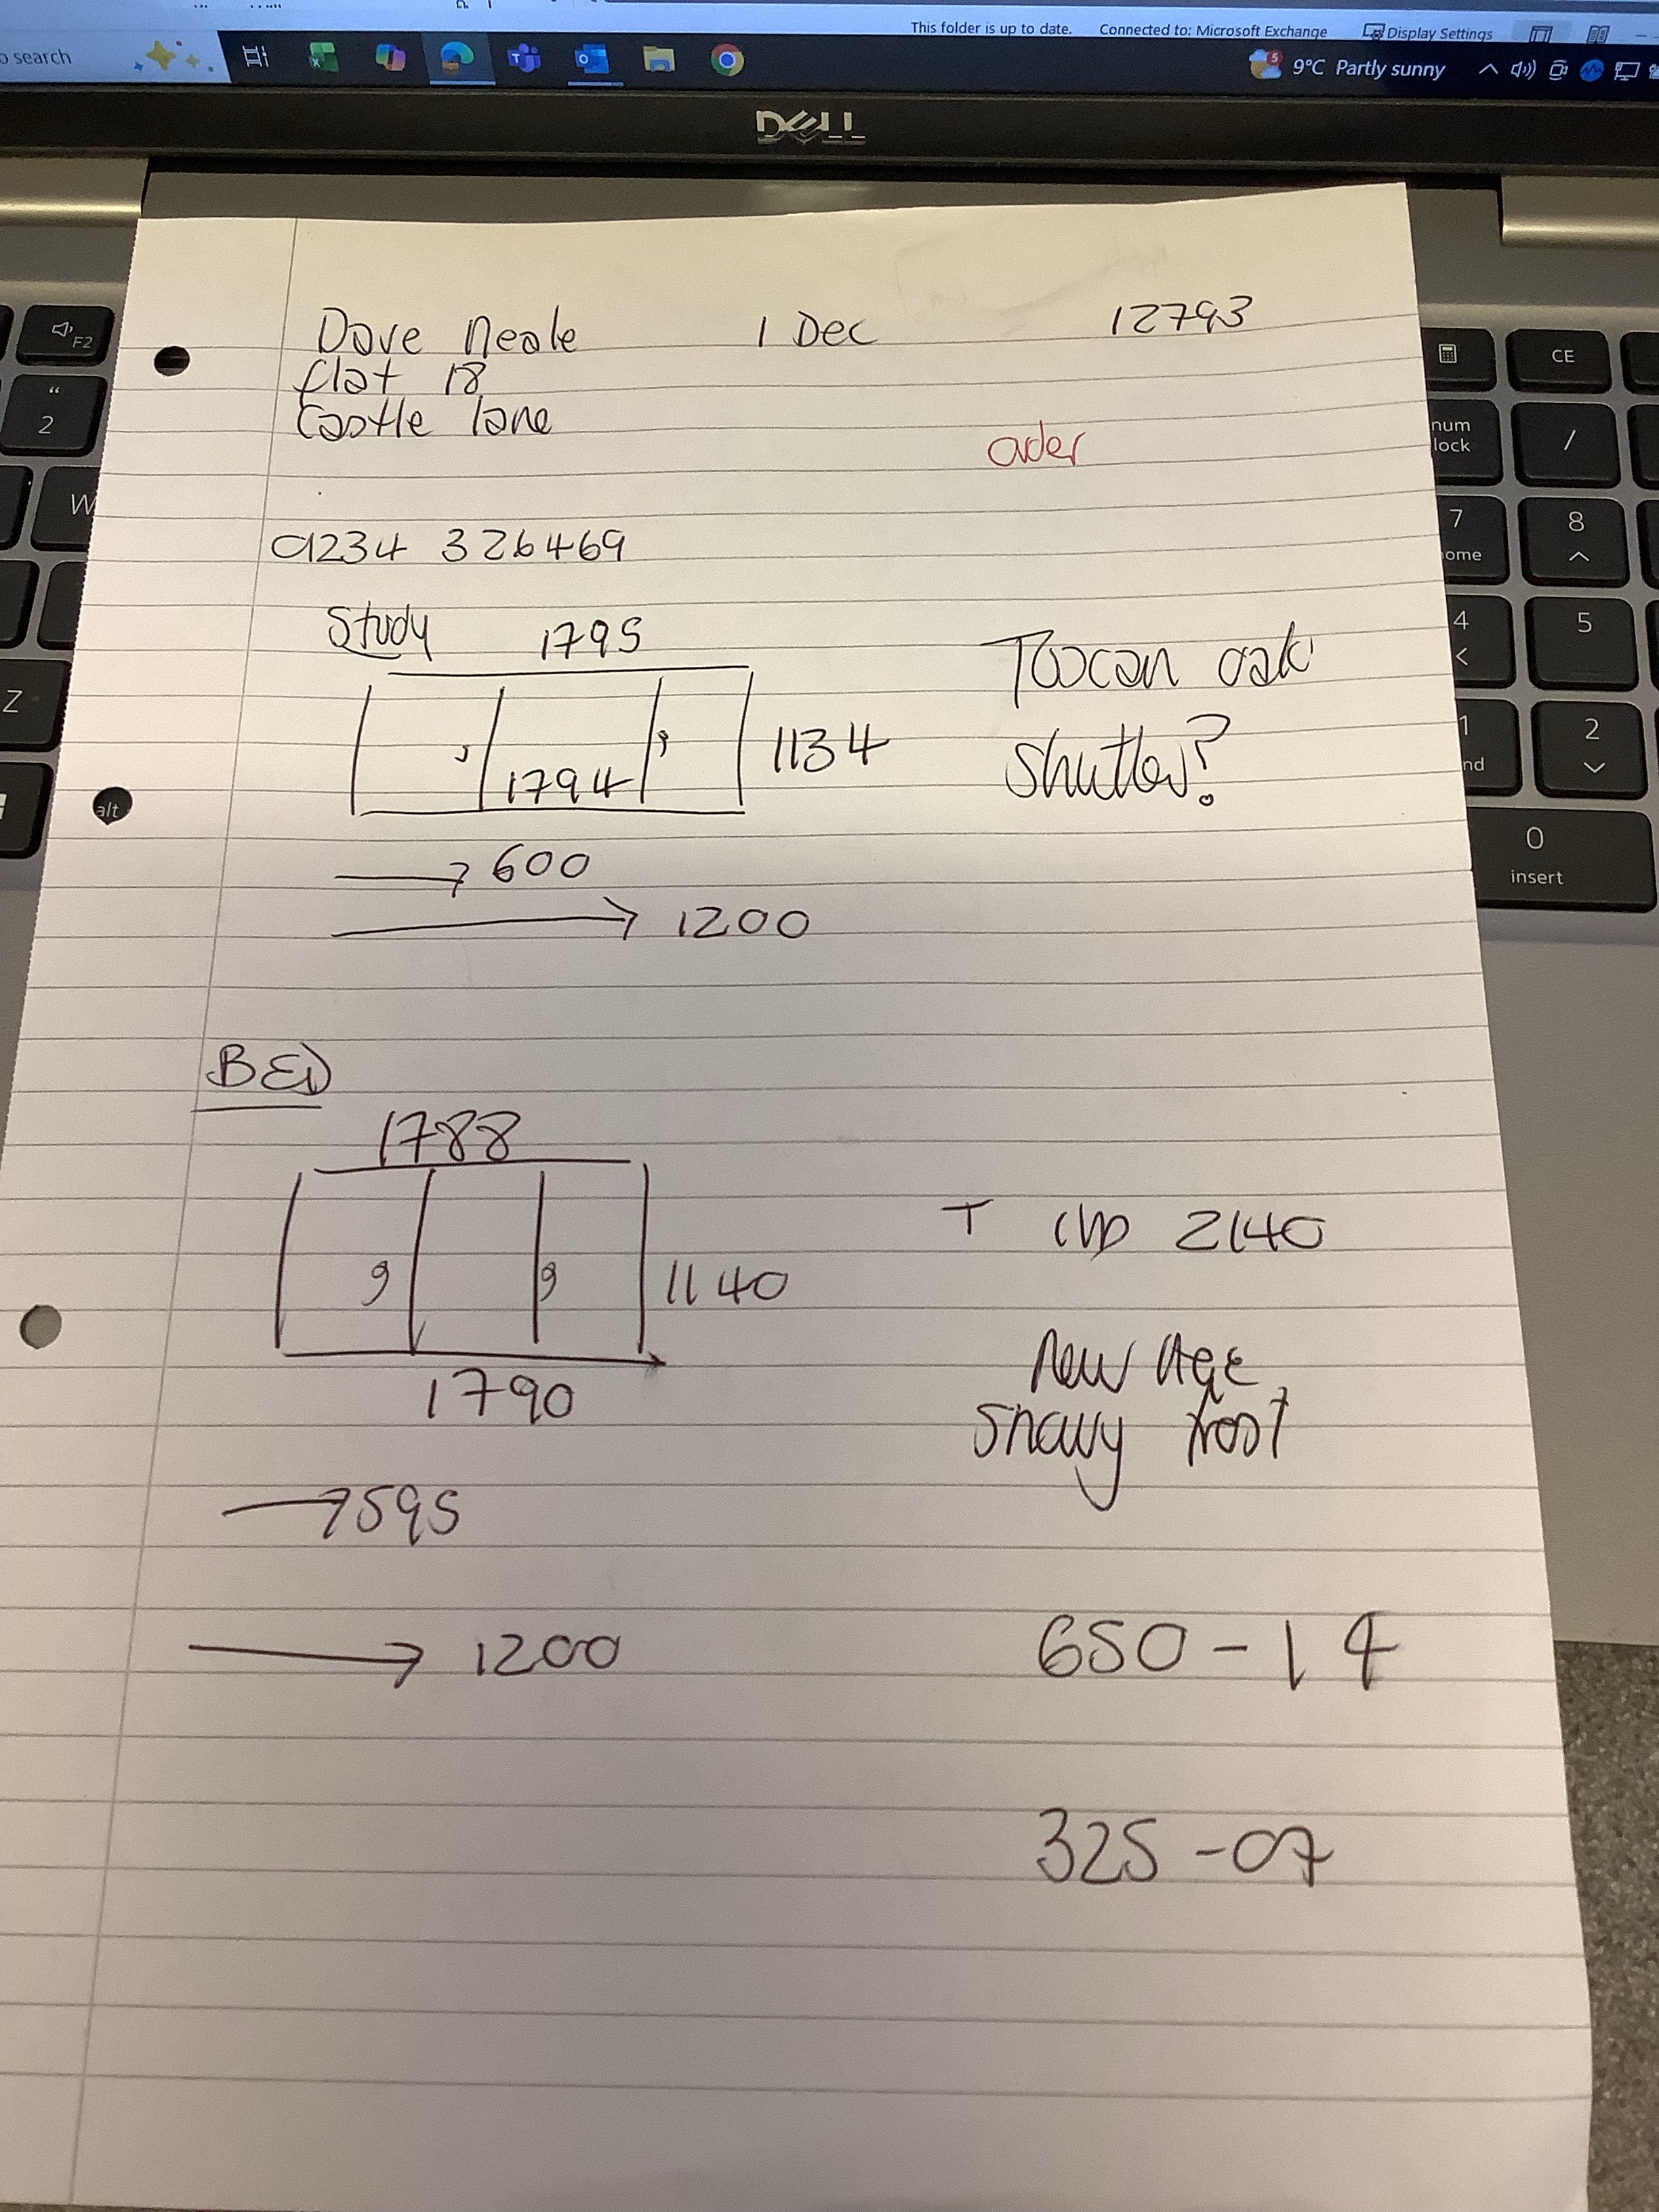 This folder is up to date. Connected to: Microsoft Exchange Display Settings
o search
5 9°C Partly sunny
DELL
Dave Neale 1 Dec 12793
flat 18
Castle lane
order
01234 326469
Study 1795
Toscan oak
1134
shutter?
1794
600
1200
BED
1788
T 2140
1140
New Age
Snowy frost
1790
595
1200
650-14
325-07
F2
" 2
W
Z
alt
CE
num lock /
7 home 8
4 5
1 end 2
0 insert